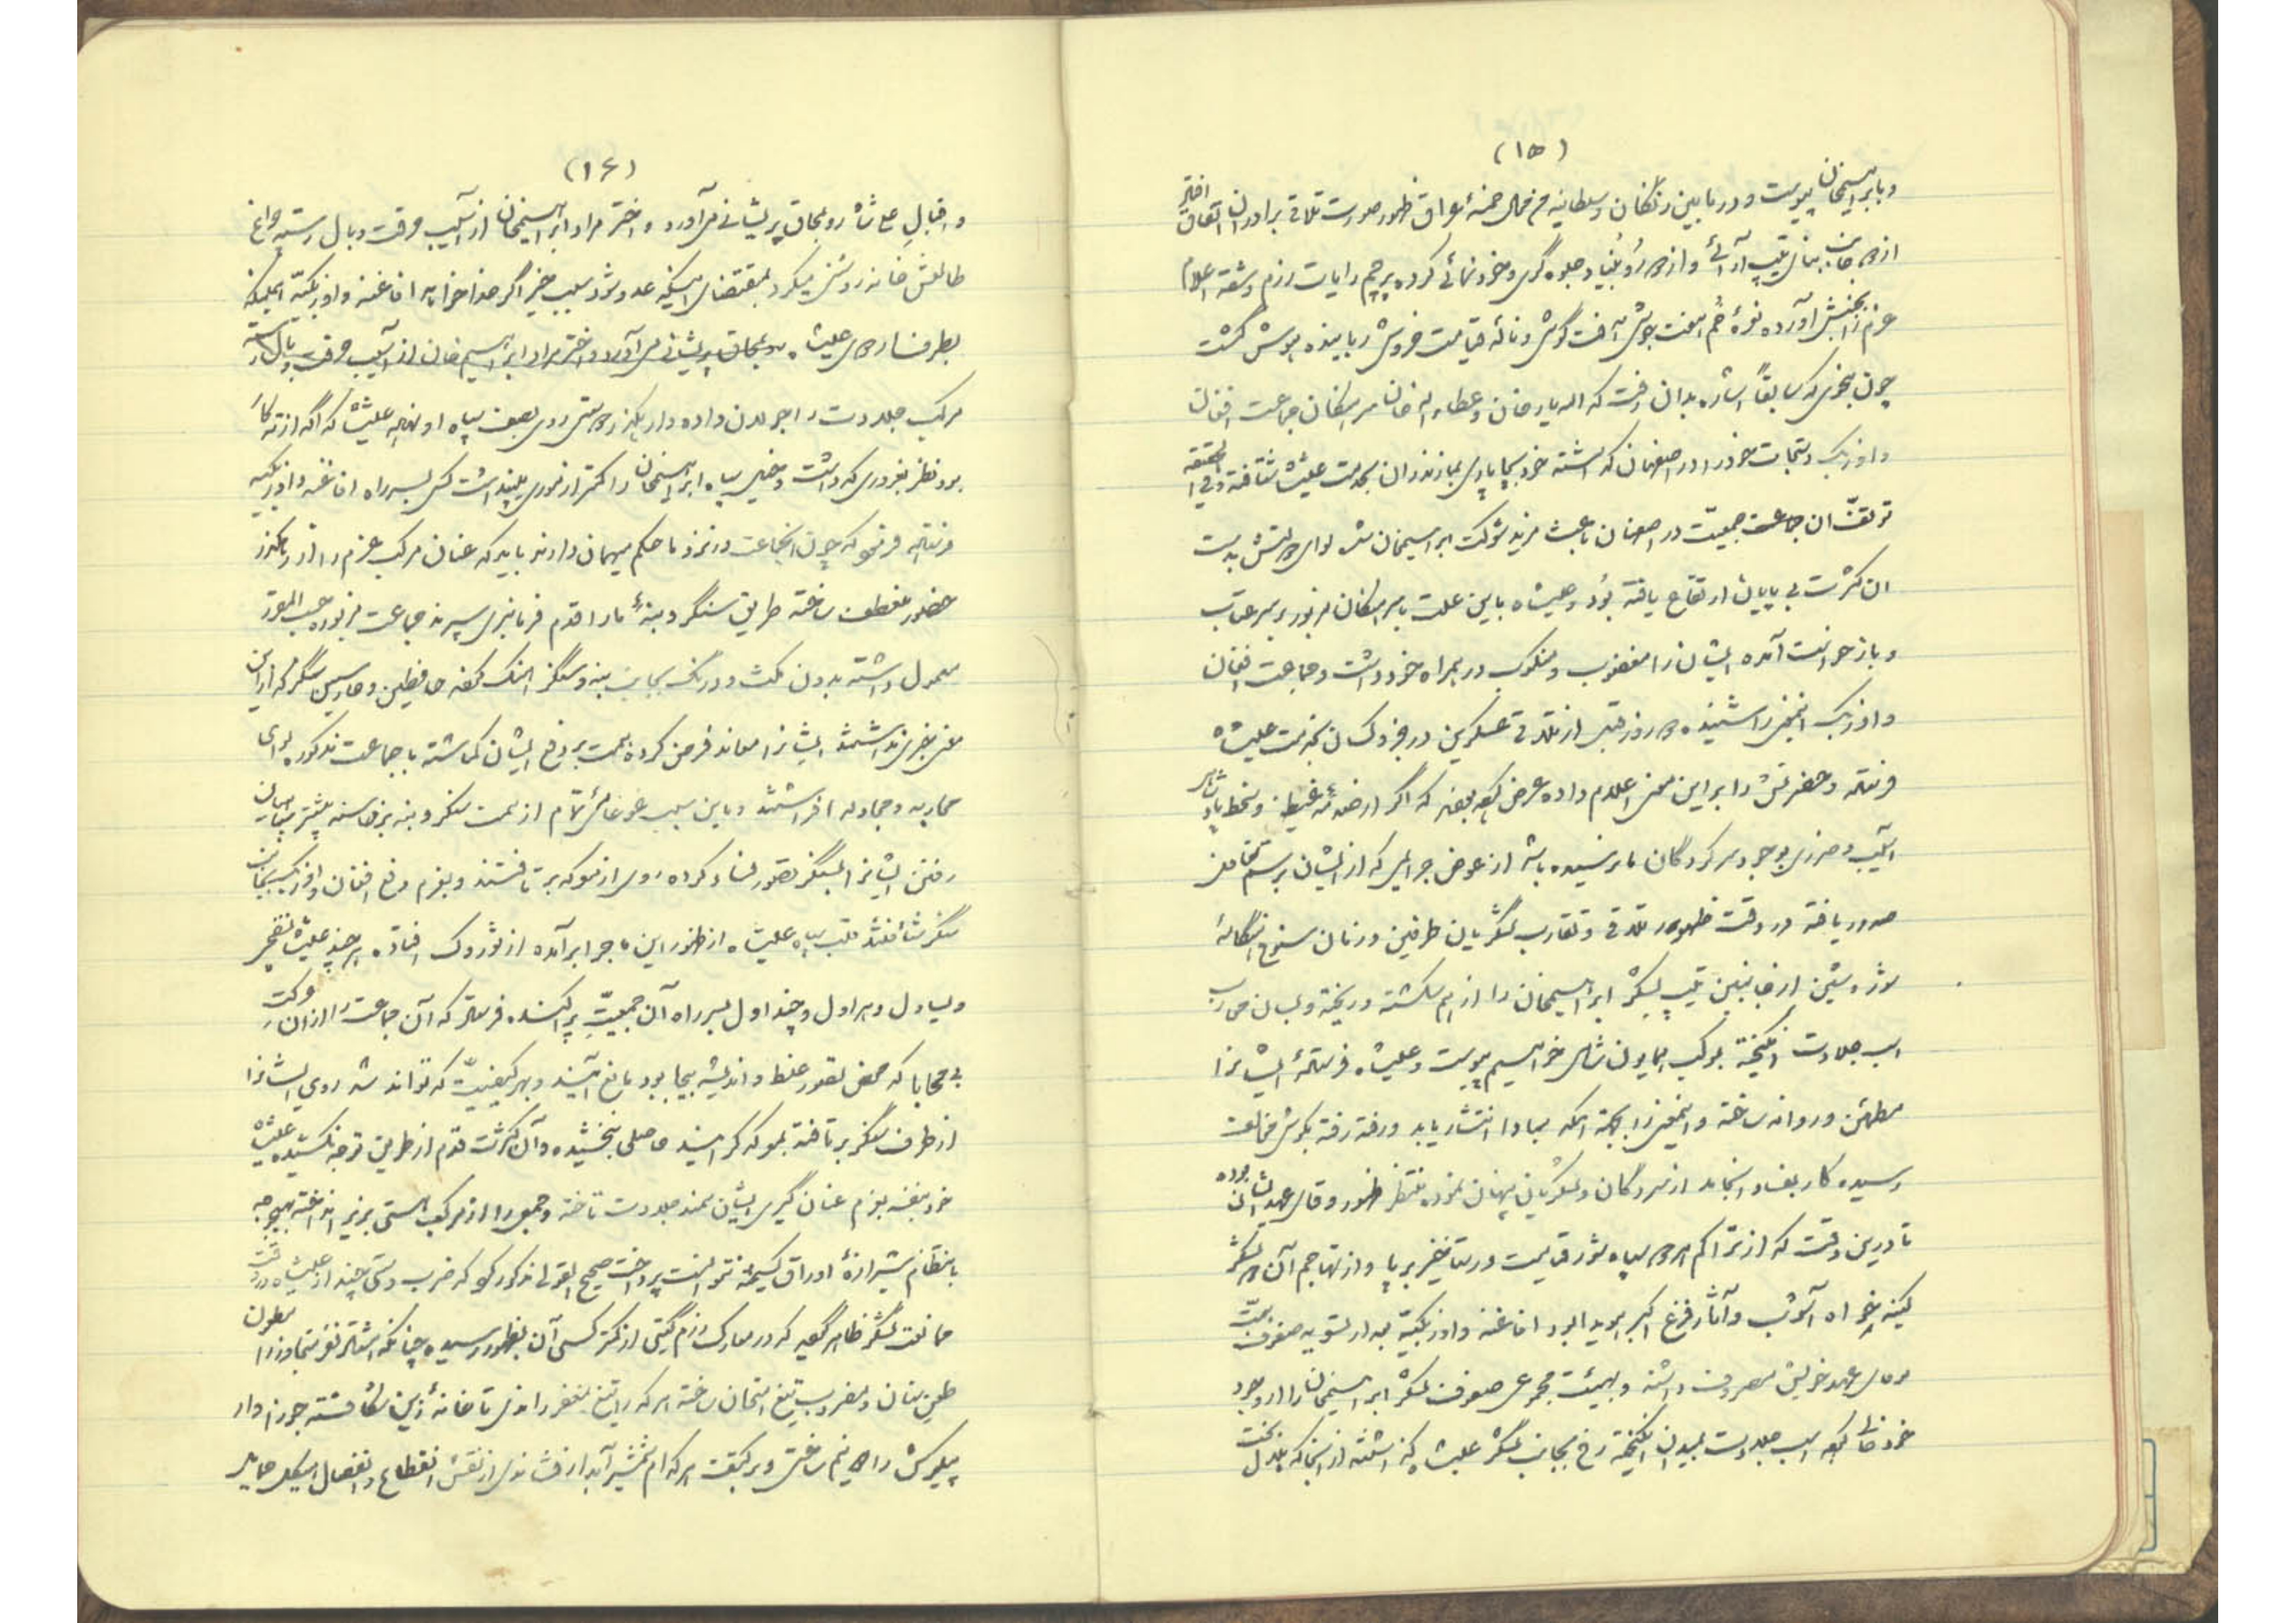 (۱۵)
و بابراهیمخان پیوست و در ما بین زنگان و سلطانیه من محال خمسهٔ عراق ظهور صورت تلاقی برادران اتفاق افتاد
از هر جانب بنای تیپ آرائی و از هر رو بنیاد جلوه گری و خودنمائی کرده پرچم رایات رزم و شقه اعلام
عزم را بجنبش آورده نعرهٔ خم هفت جوش آفت گوش و نالهٔ قیامت خروش رباینده هوش گشت
چون بنحوی که سابقاً اشاره بدان رفت که الله یار خان و عطاء الله خان سرکردگان جماعت افغان
و اوزبک و متعلقات خود را در اصفهان گذاشته خود بپایاری بمازندران بخدمت علیشاه شتافته و فی الحقیقه
توقف آن جماعت جمعیّت در اصفهان باعث مزید شوکت ابراهیمخان شد لوای دولتش بدست
آن کثرت بی پایان ارتفاع یافته بود و علیشاه باین علت با سرکردگان مزبور بر سر عتاب
و بازخواست آمده ایشان را مغضوب و منکوب در همراه خود داشت و جماعت افغان
و اوزبک اینخبر را شنیده دو روز قبل از تلاقی عسکرین در خود کسان بخدمت علیشاه
فرستاده و حضرتش را بر این معنی اعلام داده عرض کرده بودند که اگر از صدمهٔ غیظ و سخط پادشاهی
آسیب و ضرری بوجود سرکردگان ما نرسیده باشد از عوض جرایمی که از ایشان بر سر تخلف
صدور یافته در وقت ظهور تلاقی و تقارب لشگریان طرفین و زمان سنوح هنگامهٔ
شور و شین از جانبین تیپ لشگر ابراهیمخان را از هم شکسته و ریخته و بسان محارب
اسب جلادت انگیخته بموکب همایون شاهی خواهیم پیوست و علیشاه فرستادهٔ ایشانرا
مطمئن و روانه ساخته و اینخبر را بجهة اینکه مبادا انتشار یابد و رفته رفته بگوش مخالف
رسیده کار بفساد انجامد از سرکردگان و لشگریان پنهان نموده منتظر ظهور وفای عهد ایشان بوده
تا درین وقت که از تراکم هر دو سپاه شور قیامت و رستاخیز بر پا و از تهاجم آن دو لشگر
کینه خواه آشوب و آثار فزع اکبر هویدا بود افاغنه و اوزبکیّه بعد از تسویه صفوف همّت
بوفای عهد خویش مصروف داشته و بهیئت مجموعی صفوف لشگر ابراهیمخان را از وجود
خود خالی کرده اسب جلادت بمیدان انگیخته رخ بجانب لشگر علیشاه گذاشتند از آنجا که بلال بخت
(۱۶)
و اقبال علیشاه رو بمحاق پریشانی می آورد و اختر مراد ابراهیمخان از آسیب حرقت و بال رسته چراغ
طالعش خانه روشنی میکرد بمقتضای اینکه عدو شود سبب خیر اگر خدا خواهد افاغنه و اوزبکیّه همینکه
بطرف اردوی علیشاه رو بمحاق پریشانی می آورد و اختر مراد ابراهیم خان از آسیب حرقت و بال رسته
مرکب جلادت را جولان داده وارد یکزره دستی روی بصف سپاه او نهاده علیشاه که آگه از ته کار
بود نظر بغروری که داشت و خیل سپاه ابراهیمخان را کمتر از موری میپنداشت کس بسر راه افاغنه و اوزبکیه
فرستاده فرمود که چون آنجماعت در نزد ما حکم میهمان دارند باید که عنان مرکب عزم را از راه گذر
حضور منعطف ساخته طریق سنگر و بنهٔ ما را قدم فرمانبری سپرند جماعت مزبور حسب المقرر
معمول داشته بدون مکث و درنگ بجانب بنه و سنگر آهنگ کرده حافظین و حارسین سنگر که از این
معنی خبری نداشتند ایشانرا معاند فرض کرده همت بر دفع ایشان گماشته با جماعت مذکور لوای
محاربه و مجادله افراشتند و باین سبب غوغائی تمام از سمت سنگر و بنه برخاسته بیشتر سپاهیان
رفتن ایشانرا بسنگر تصور فساد کرده روی از معرکه بر تافتند و بعزم دفع افغان و اوزبک بجانب
سنگر شتافتند قلب سپاه علیشاه از ظهور این ماجرا بر آمده از توزوک افتاد هر چند علیشاه بنفسه
و یساول و هراول و چنداول بسر راه آن جمعیّت پراکنده فرستاد که آن جماعت را از آن حرکت
بی محابا که محض تصور غلط و اندیشه بیجا بود مانع آیند و بهر کیفیت که توانند شد روی ایشانرا
از طرف سنگر بر تافته بمعرکه گر اینند حاصلی نبخشیده و آن کثرت قدم از طریق توجه نکشیده علیشاه
خود بنفسه بعزم عنان گیری ایشان سمند جلادت تاخته و جمعی را از مرکب هستی بزیر انداخته بهیچوجه
بانتظام شیرازهٔ اوراق گسیخته نتوانست پرداخت صحیح القولی مذکور کرد که ضرب دستی چند از علیشاه در وقت
ممانعت لشگر ظاهر گردید که در معارک رزم گیتی از کمتر کسی آن بظهور رسیده چنانکه هشتاد نفر متجاوز را مطعون
طعن سنان و مضروب تیغ امتحان ساخته هر که را تیغ بمغفر راندی تا خانهٔ زین شکافته جوزا وار
پیکرش را دو نیم ساختی و بر کتف هر کدام شمشیر آبدار فشاندی از نقش انقطاع و انفصال هیکل حمایل